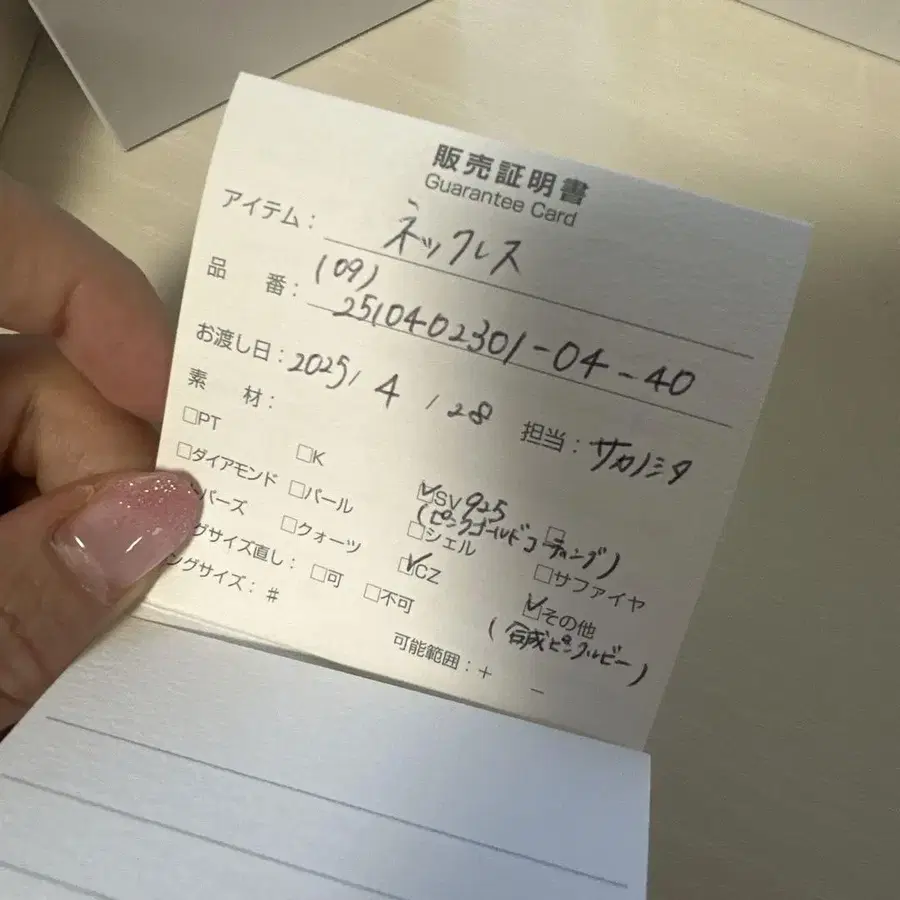 販売証明書
Guarantee Card
アイテム： ネックレス
(09)
品 番： 2510402301-04-40
お渡し日：2025/ 4 / 28 担当：サカノシタ
素 材：
□PT □K ☑SV925 □
(ピンクゴールドコーティング)
□ダイアモンド □パール □シェル □サファイヤ
バーズ □クォーツ ☑CZ ☑その他
(合成ピンクルビー)
グサイズ直し： □可 □不可 可能範囲：+ −
ングサイズ：#